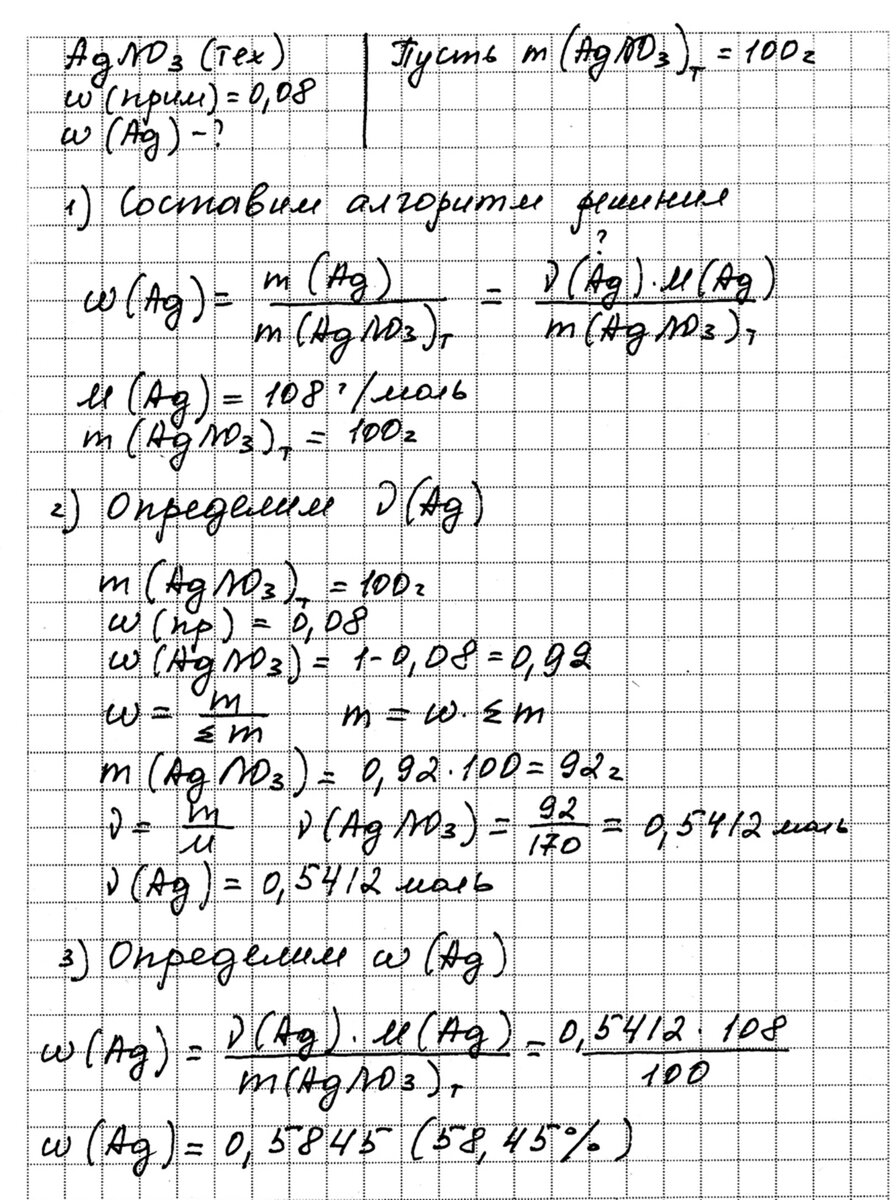 AgNO₃ (тех)
w (прим) = 0,08
w (Ag) - ?
Пусть m (AgNO₃)т = 100г
1) Составим алгоритм решения
?
w (Ag) = m (Ag) / m (AgNO₃)т = ν(Ag) · M(Ag) / m (AgNO₃)т
M (Ag) = 108 г/моль
m (AgNO₃)т = 100г
2) Определим ν(Ag)
m (AgNO₃)т = 100г
w (пр) = 0,08
w (AgNO₃) = 1 - 0,08 = 0,92
w = m / Σm m = w · Σm
m (AgNO₃) = 0,92 · 100 = 92г
ν = m / M ν(AgNO₃) = 92 / 170 = 0,5412 моль
ν(Ag) = 0,5412 моль
3) Определим w (Ag)
w (Ag) = ν(Ag) · M(Ag) / m(AgNO₃)т = 0,5412 · 108 / 100
w (Ag) = 0,5845 (58,45%)